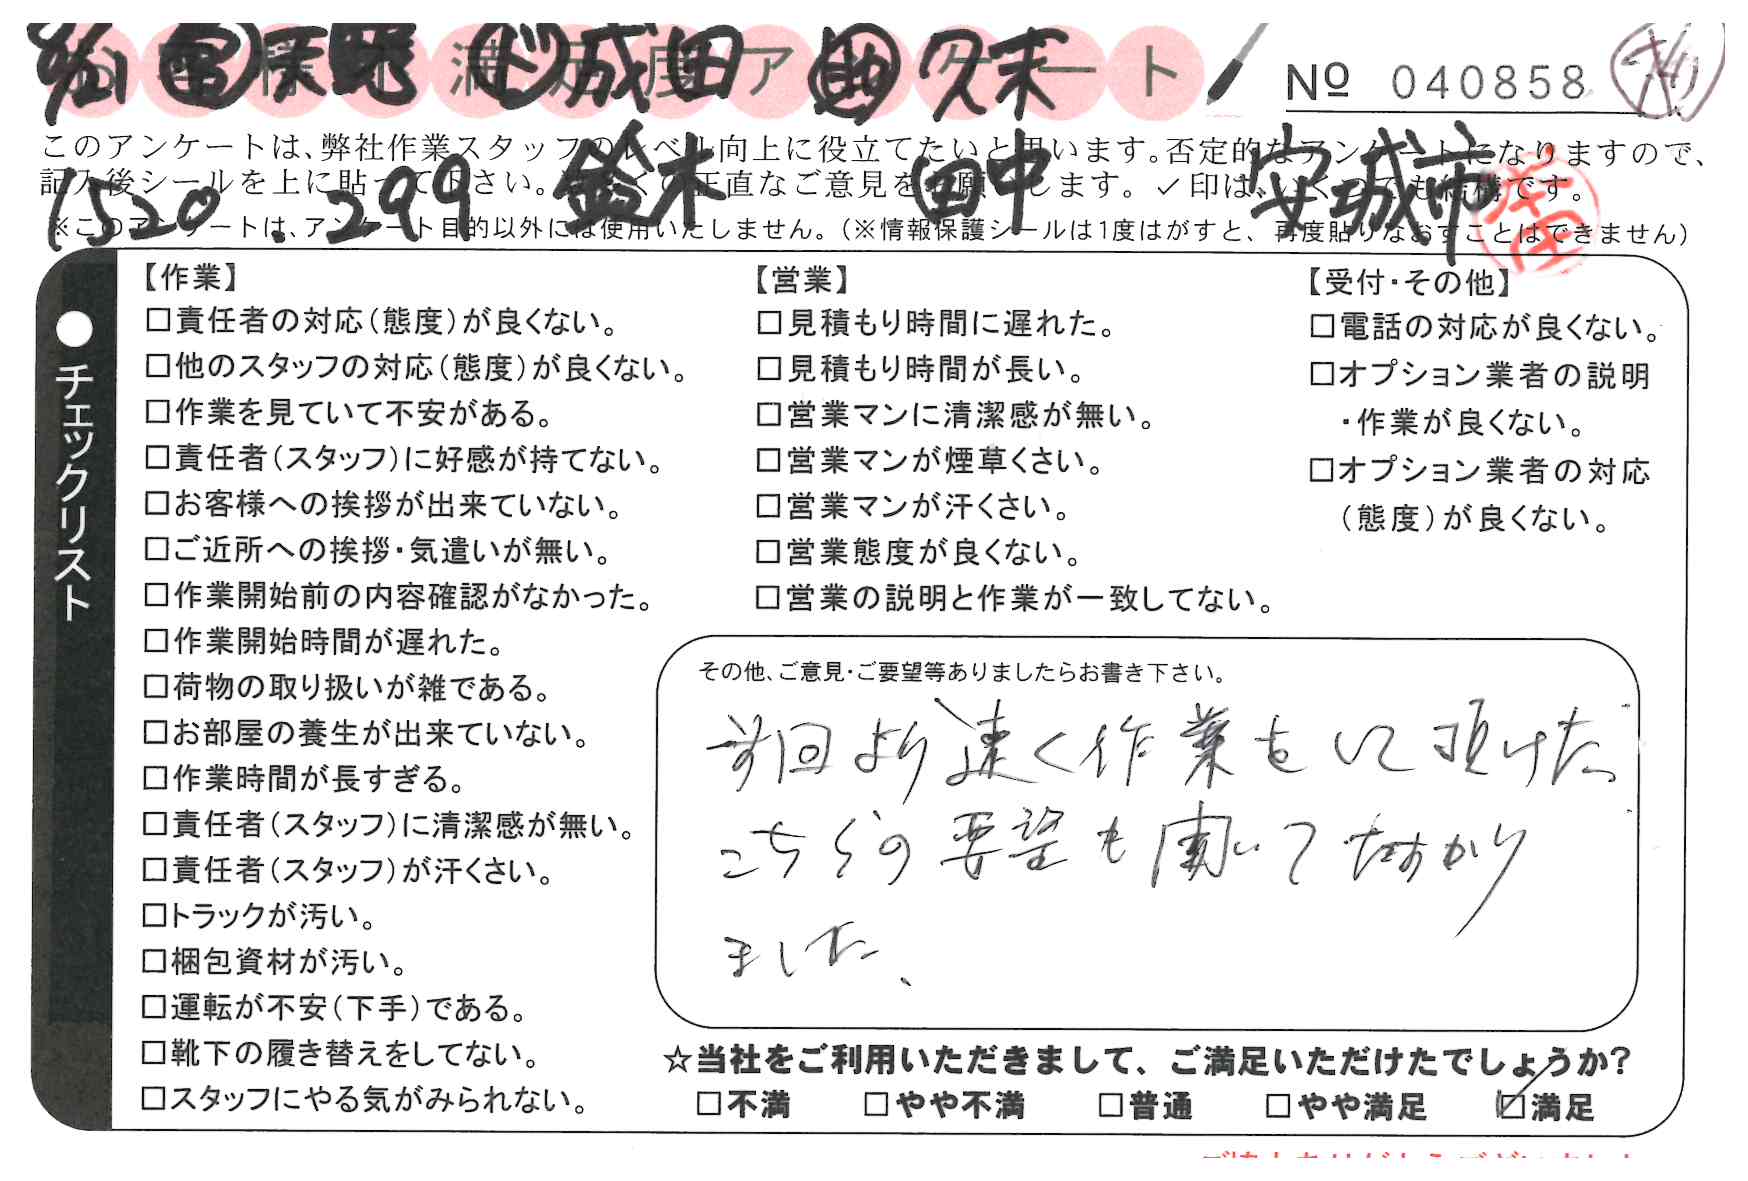 お客様不満足度アンケート
9/21 ㊞天野 ド成田 助久末
№ 040858
このアンケートは、弊社作業スタッフのレベル向上に役立てたいと思います。否定的なアンケートになりますので、
記入後シールを上に貼って下さい。 正直なご意見をお願いします。✓印は、いくつでも結構です。
1520.299 鈴木 田中 安城市
※このアンケートは、アンケート目的以外には使用いたしません。(※情報保護シールは1度はがすと、再度貼りなおすことはできません)
●チェックリスト
【作業】
□責任者の対応(態度)が良くない。
□他のスタッフの対応(態度)が良くない。
□作業を見ていて不安がある。
□責任者(スタッフ)に好感が持てない。
□お客様への挨拶が出来ていない。
□ご近所への挨拶・気遣いが無い。
□作業開始前の内容確認がなかった。
□作業開始時間が遅れた。
□荷物の取り扱いが雑である。
□お部屋の養生が出来ていない。
□作業時間が長すぎる。
□責任者(スタッフ)に清潔感が無い。
□責任者(スタッフ)が汗くさい。
□トラックが汚い。
□梱包資材が汚い。
□運転が不安(下手)である。
□靴下の履き替えをしてない。
□スタッフにやる気がみられない。
【営業】
□見積もり時間に遅れた。
□見積もり時間が長い。
□営業マンに清潔感が無い。
□営業マンが煙草くさい。
□営業マンが汗くさい。
□営業態度が良くない。
□営業の説明と作業が一致してない。
【受付・その他】
□電話の対応が良くない。
□オプション業者の説明
・作業が良くない。
□オプション業者の対応
(態度)が良くない。
その他、ご意見・ご要望等ありましたらお書き下さい。
前回より速く作業をして頂けた。
こちらの要望も聞いてたすかり
ました、
☆当社をご利用いただきまして、ご満足いただけたでしょうか?
□不満 □やや不満 □普通 □やや満足 ☑満足